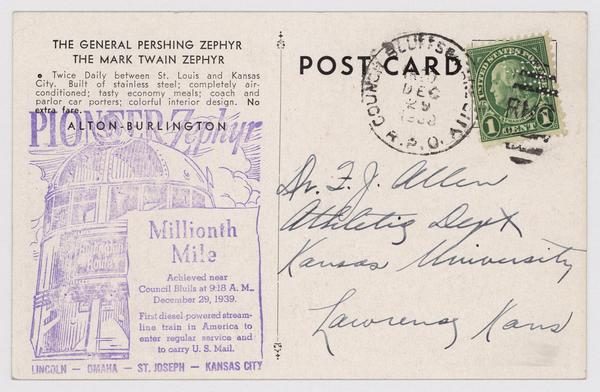 THE GENERAL PERSHING ZEPHYR
THE MARK TWAIN ZEPHYR
• Twice Daily between St. Louis and Kansas
City. Built of stainless steel; completely air-
conditioned; tasty economy meals; coach and
parlor car porters; colorful interior design. No
extra fare.
ALTON-BURLINGTON
PIONEER Zephyr
Millionth
Mile
Achieved near
Council Bluffs at 9:18 A. M.,
December 29, 1939.
First diesel-powered stream-
line train in America to
enter regular service and
to carry U. S. Mail.
LINCOLN — OMAHA — ST. JOSEPH — KANSAS CITY
POST CARD
COUNCIL BLUFFS
DEC
29
R.P.O.
UNITED STATES POSTAGE
1 CENT 1
Dr. F. J. Allen
Athletic Dept
Kansas University
Lawrence Kans